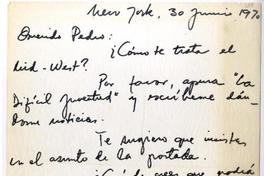 New York, 30 junio 1970
Querido Pedro:
¿Cómo te trata el
Mid-West?
Por favor, apura "La
Difícil Juventud" y escríbeme dán-
dome noticias.
Te sugiero que insistas
en el asunto de la portada.
¿Qué crees que podrá